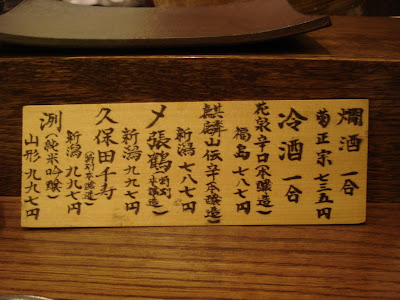 燗酒 一合
菊正宗 七三五円
冷酒 一合
花泉辛口(本醸造)
福島 七八七円
麒麟山伝辛(本醸造)
新潟 七八七円
〆張鶴(特別本醸造)
新潟 九九七円
久保田千寿(特別本醸造)
新潟 九九七円
洌(純米吟醸)
山形 九九七円